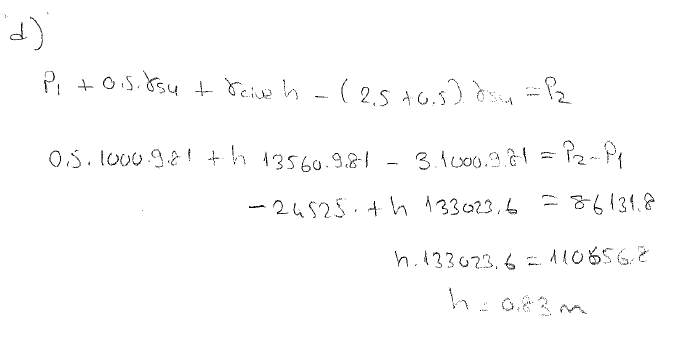 d)
P₁ + 0.5.γsu + γcıva h - (2,5 + 0.5) γsu = P₂
0.5.1000.9.81 + h 13560.9.81 - 3.1000.9.81 = P₂-P₁
-24525. + h 133023,6 = 86131.8
h.133023,6 = 110656.8
h = 0.83 m